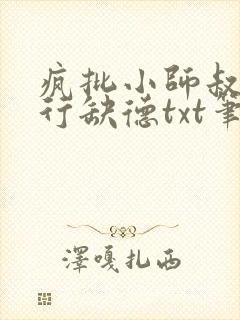 疯批小師叔
行缺德txt筆
澤嘎扎西